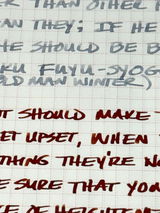 ER THAN OTHER
AN THEY; IF HE
HE SHOULD BE B
KU FUYU-SYOG
OLD MAN WINTER)
T SHOULD MAKE
ET UPSET, WHEN
THING THEY'RE NO
E SURE THAT YOU